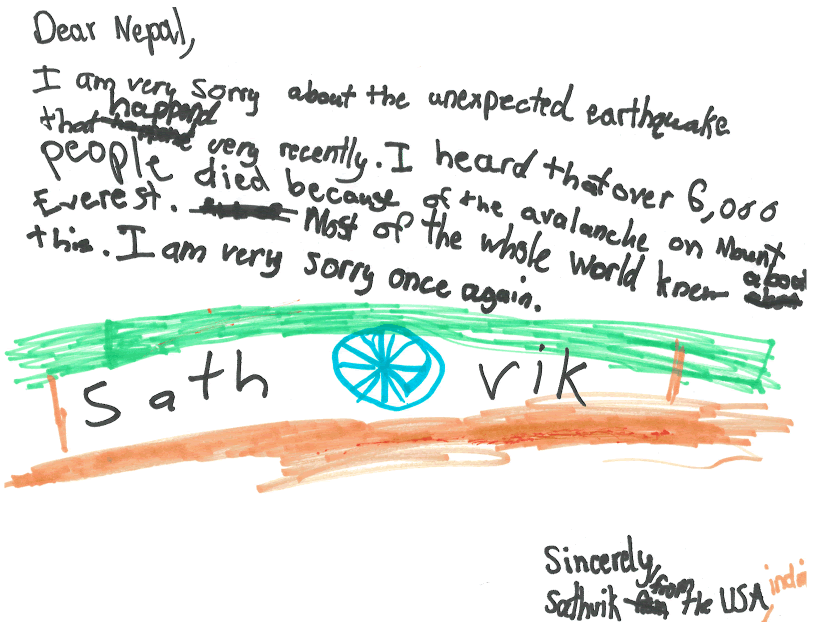 Dear Nepal,
I am very sorry about the unexpected earthquake
that happend very recently. I heard that over 6,000
people died because of the avalanche on Mount
Everest. Most of the whole world knew
this. I am very sorry once again.
Sath vik
Sincerely,
Sathvik from the USA